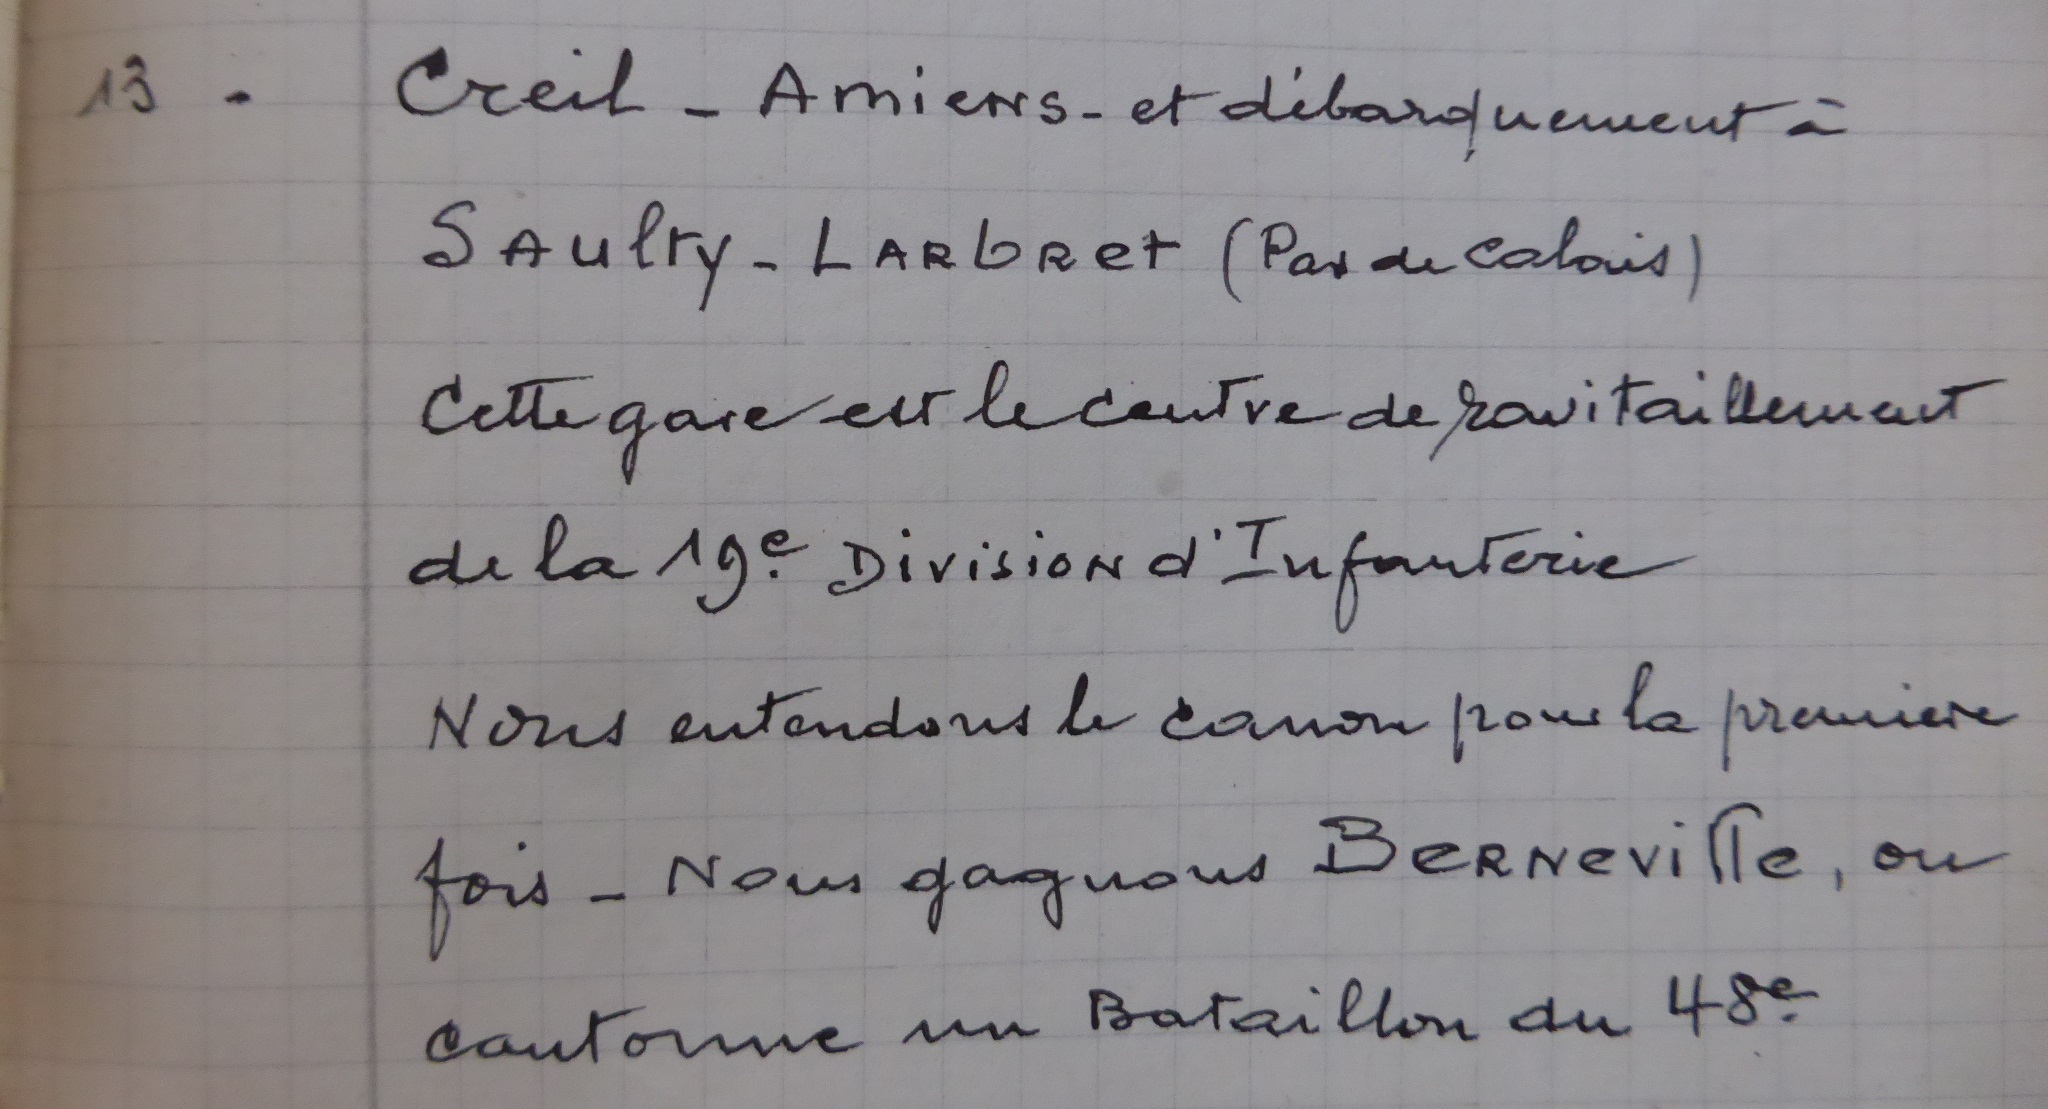 13 - Creil - Amiens - et débarquement à
Saulty - Larbret (Pas de Calais)
Cette gare est le centre de ravitaillement
de la 19e Division d'Infanterie
Nous entendons le canon pour la premiere
fois - Nous gagnons Berneville, ou
cantonne un Bataillon du 48e